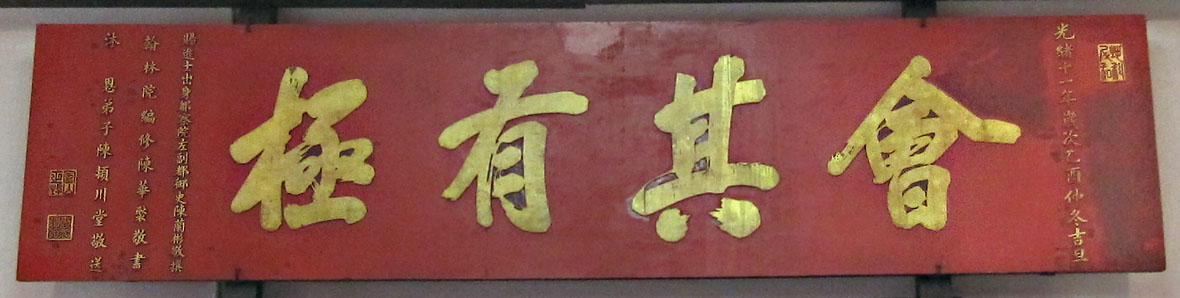 光緒十一年歲次乙酉仲冬吉旦
會其有極
賜進士出身都察院左副都御史陳蘭彬敬撰
翰林院編修陳華褧敬書
沐恩弟子陳潁川堂敬送